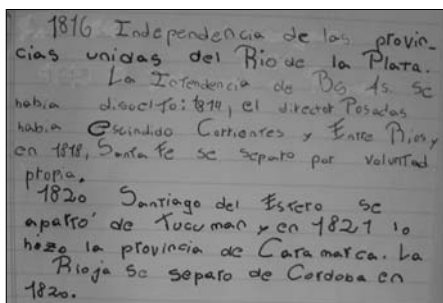 1816 Independencia de las provin-
cias unidas del Rio de la Plata.
La Intendencia de Bs. As. se
habia disuelto: 1814, el director Posadas
habia escindido Corrientes y Entre Rios, y
en 1818, Santa Fe se separo por voluntad
propia.
1820 Santiago del Estero se
apartó de Tucuman y en 1821 lo
hizo la provincia de Catamarca. La
Rioja se separo de Cordoba en
1820.